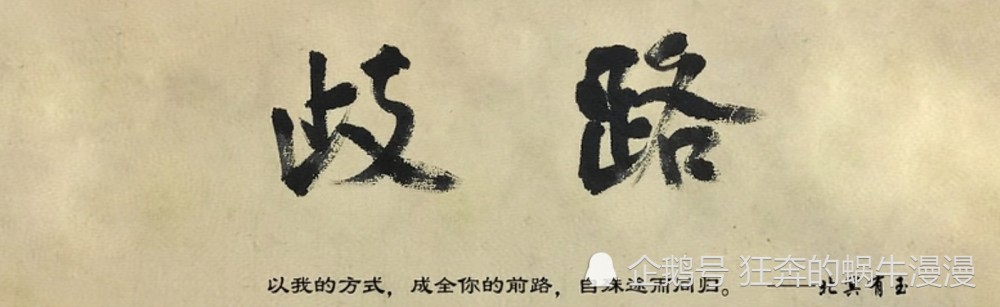 歧 路
以我的方式，成全你的前路，自殊途而同归。——北冥有玉
企鹅号 狂奔的蜗牛漫漫